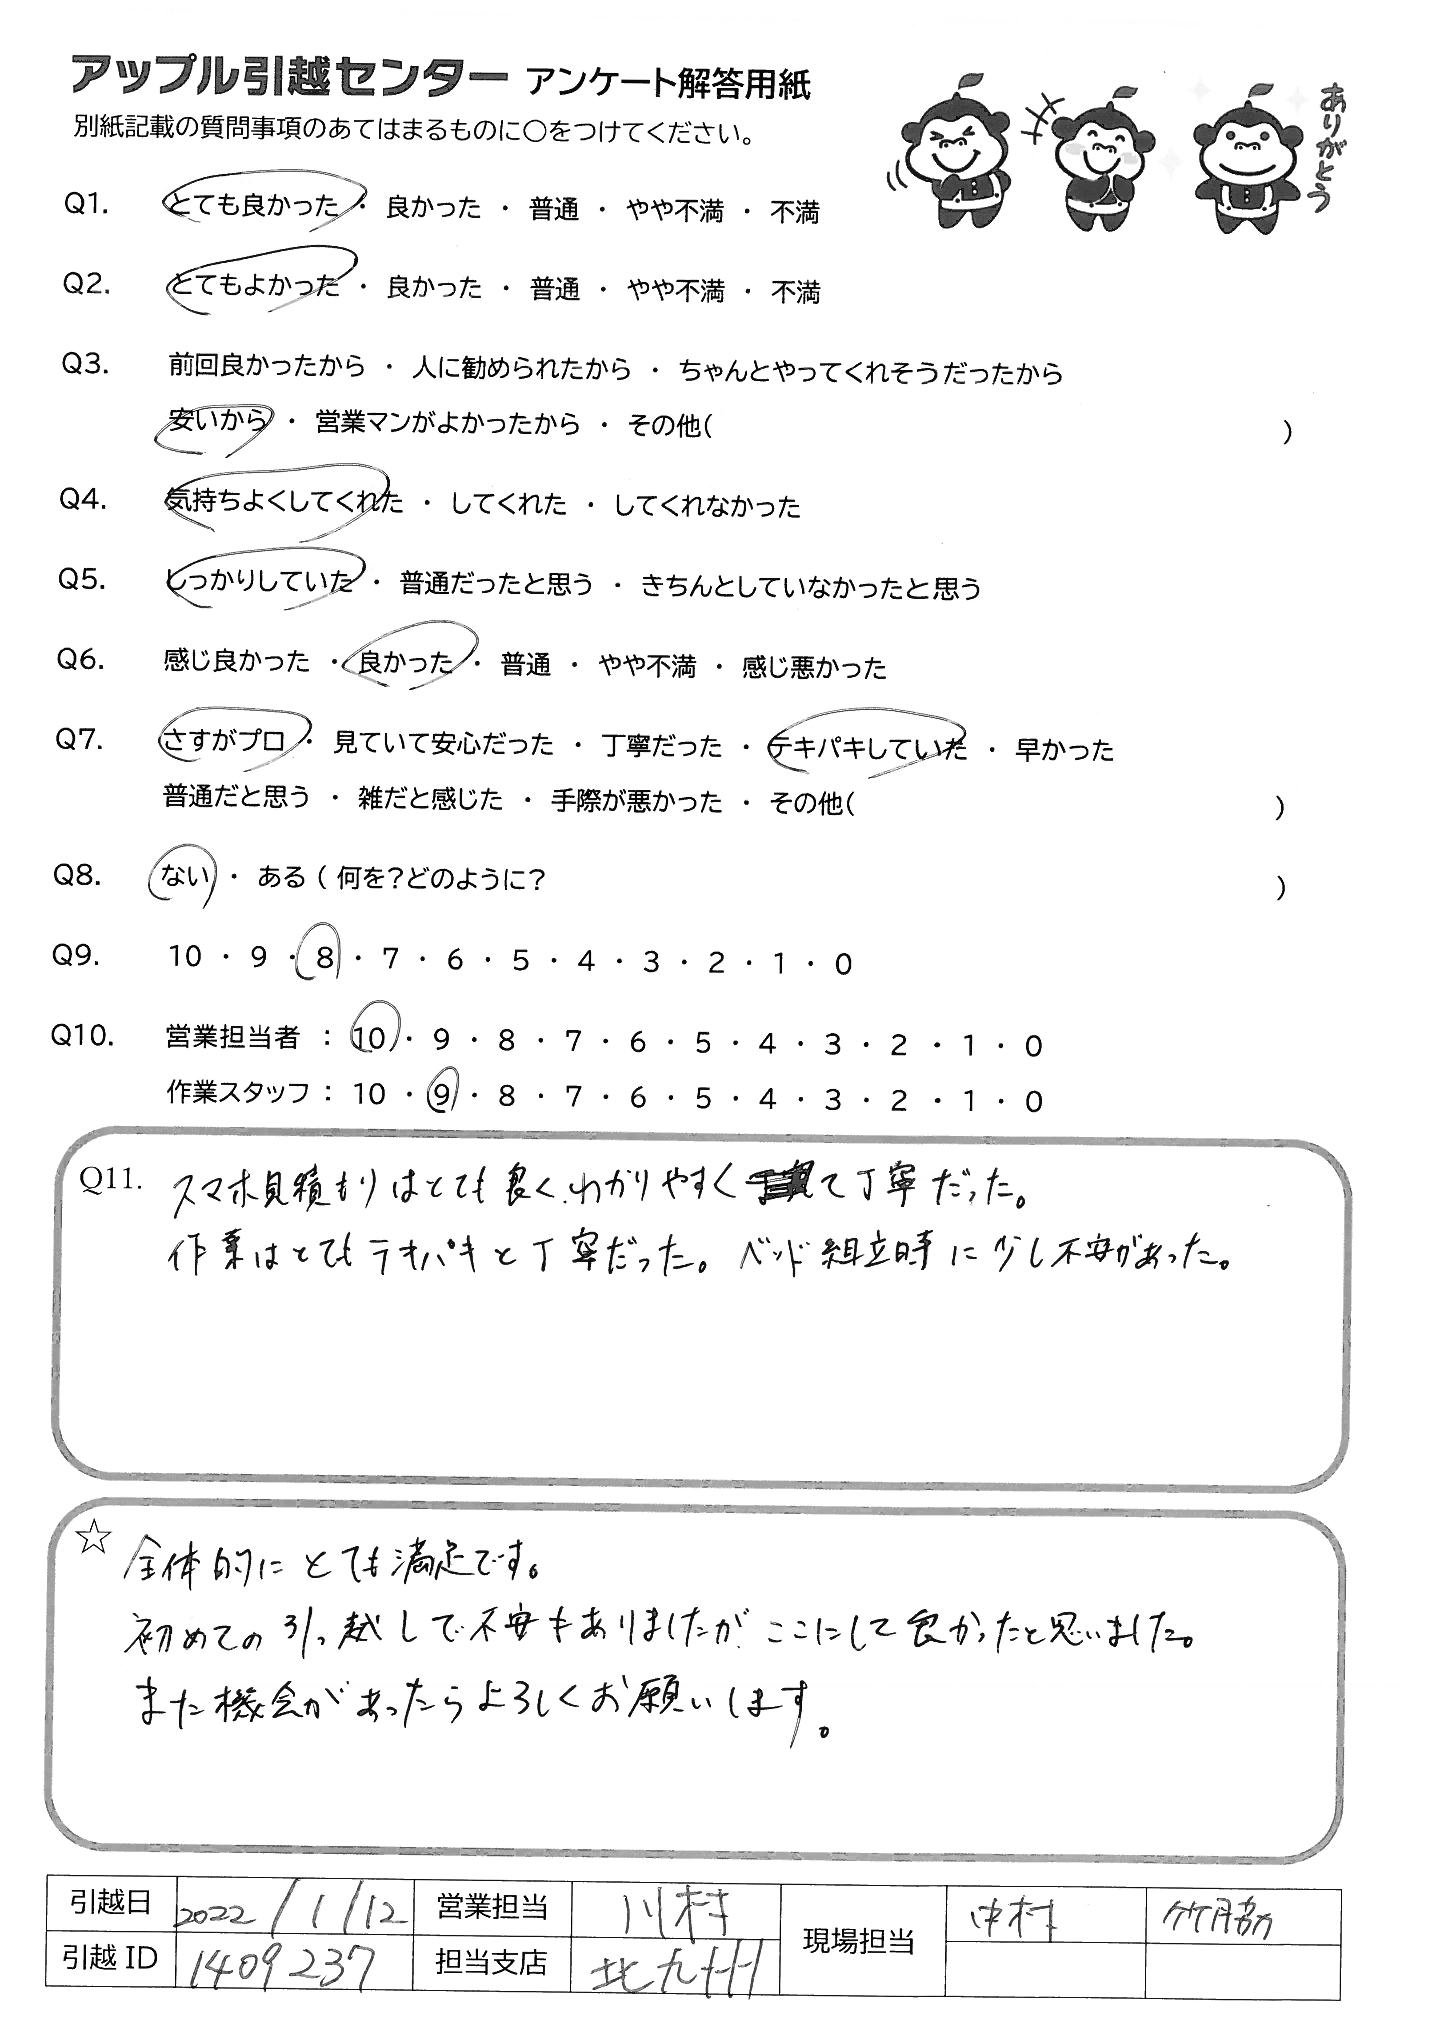 アップル引越センター アンケート解答用紙
ありがとう
別紙記載の質問事項のあてはまるものに○をつけてください。
Q1. とても良かった ・ 良かった ・ 普通 ・ やや不満 ・ 不満
Q2. とてもよかった ・ 良かった ・ 普通 ・ やや不満 ・ 不満
Q3. 前回良かったから ・ 人に勧められたから ・ ちゃんとやってくれそうだったから
安いから ・ 営業マンがよかったから ・ その他( )
Q4. 気持ちよくしてくれた ・ してくれた ・ してくれなかった
Q5. しっかりしていた ・ 普通だったと思う ・ きちんとしていなかったと思う
Q6. 感じ良かった ・ 良かった ・ 普通 ・ やや不満 ・ 感じ悪かった
Q7. さすがプロ ・ 見ていて安心だった ・ 丁寧だった ・ テキパキしていた ・ 早かった
普通だと思う ・ 雑だと感じた ・ 手際が悪かった ・ その他( )
Q8. ない ・ ある ( 何を?どのように? )
Q9. 10 ・ 9 ・ 8 ・ 7 ・ 6 ・ 5 ・ 4 ・ 3 ・ 2 ・ 1 ・ 0
Q10. 営業担当者 : 10 ・ 9 ・ 8 ・ 7 ・ 6 ・ 5 ・ 4 ・ 3 ・ 2 ・ 1 ・ 0
作業スタッフ : 10 ・ 9 ・ 8 ・ 7 ・ 6 ・ 5 ・ 4 ・ 3 ・ 2 ・ 1 ・ 0
Q11. スマホ見積もりはとても良く、わかりやすくて丁寧だった。
作業はとてもテキパキと丁寧だった。ベッド組立時に少し不安があった。
☆ 全体的にとても満足です。
初めての引っ越しで不安もありましたが、ここにして良かったと思いました。
また機会があったらよろしくお願いします。
引越日 2022/1/12 営業担当 川村 現場担当 中村 竹脇
引越ID 1409237 担当支店 北九州